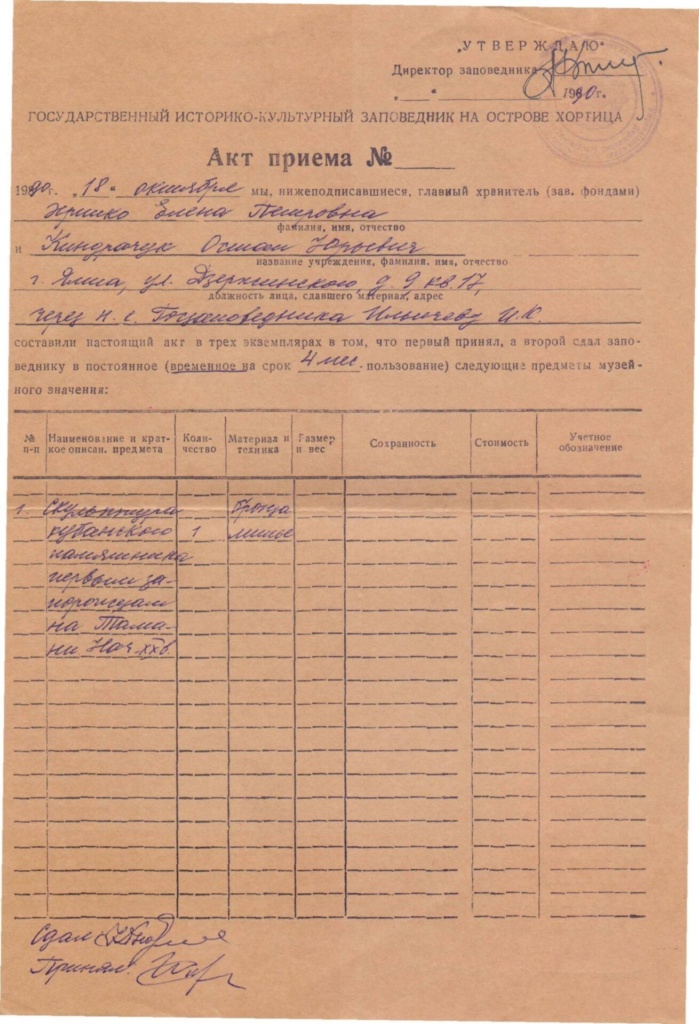 „УТВЕРЖДАЮ"
Директор заповедника
„ " 1990г.
ГОСУДАРСТВЕННЫЙ ИСТОРИКО-КУЛЬТУРНЫЙ ЗАПОВЕДНИК НА ОСТРОВЕ ХОРТИЦА
Акт приема №
1990г. „18" октября мы, нижеподписавшиеся, главный хранитель (зав. фондами)
Елена Петровна
фамилия, имя, отчество
и Кындрачук Остап Юрьевич
название учреждения, фамилия, имя, отчество
г. Ялта, ул. Дзержинского д. 9 кв. 17,
должность лица, сдавшего материал, адрес
через н. с. Госзаповедника Ильичеву И.К.
составили настоящий акт в трех экземплярах в том, что первый принял, а второй сдал запо-
веднику в постоянное (временное на срок 4 мес. пользование) следующие предметы музей-
ного значения:
№ п-п Наименование и крат- кое описан. предмета Коли- чество Материал и техника Размер и вес Сохранность Стоимость Учетное обозначение
1. Скульптура бронза
кубанского 1 литье
памятника
первым за-
порожцам
на Тама-
ни Нач. XXв.
Сдал:
Принял: